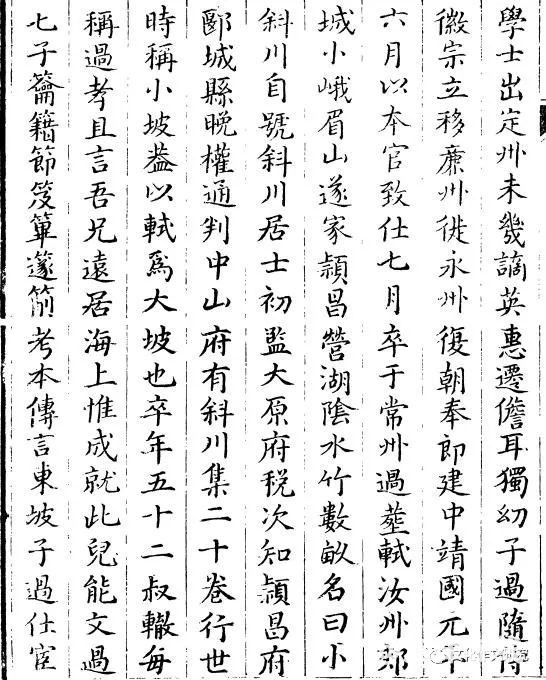 學士出定州未幾謫英惠遷儋耳獨幼子過隨侍
徽宗立移廉州徙永州復朝奉郎建中靖國元年
六月以本官致仕七月卒于常州過塟軾汝州郟
城小峨眉山遂家頴昌營湖隂水竹數畝名曰小
斜川自號斜川居士初監大原府税次知頴昌府
郾城縣晚權通判中山府有斜川集二十卷行世
時稱小坡葢以軾爲大坡也卒年五十二叔轍每
稱過孝且言吾兄遠居海上惟成就此兒能文過
七子籥籍節笈篳邃箾考本傳言東坡子過仕宦